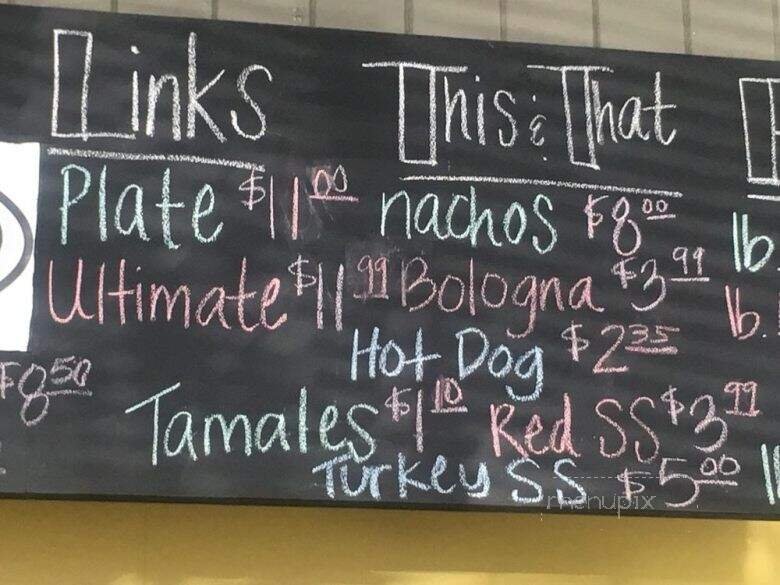 Links
Plate $11.00
Ultimate $11.99
This & That
nachos $8.00
Bologna $3.99
Hot Dog $2.35
Tamales $1.10
Red SS $3.99
Turkey SS $5.00
$8.50
lb.
lb.
menupix